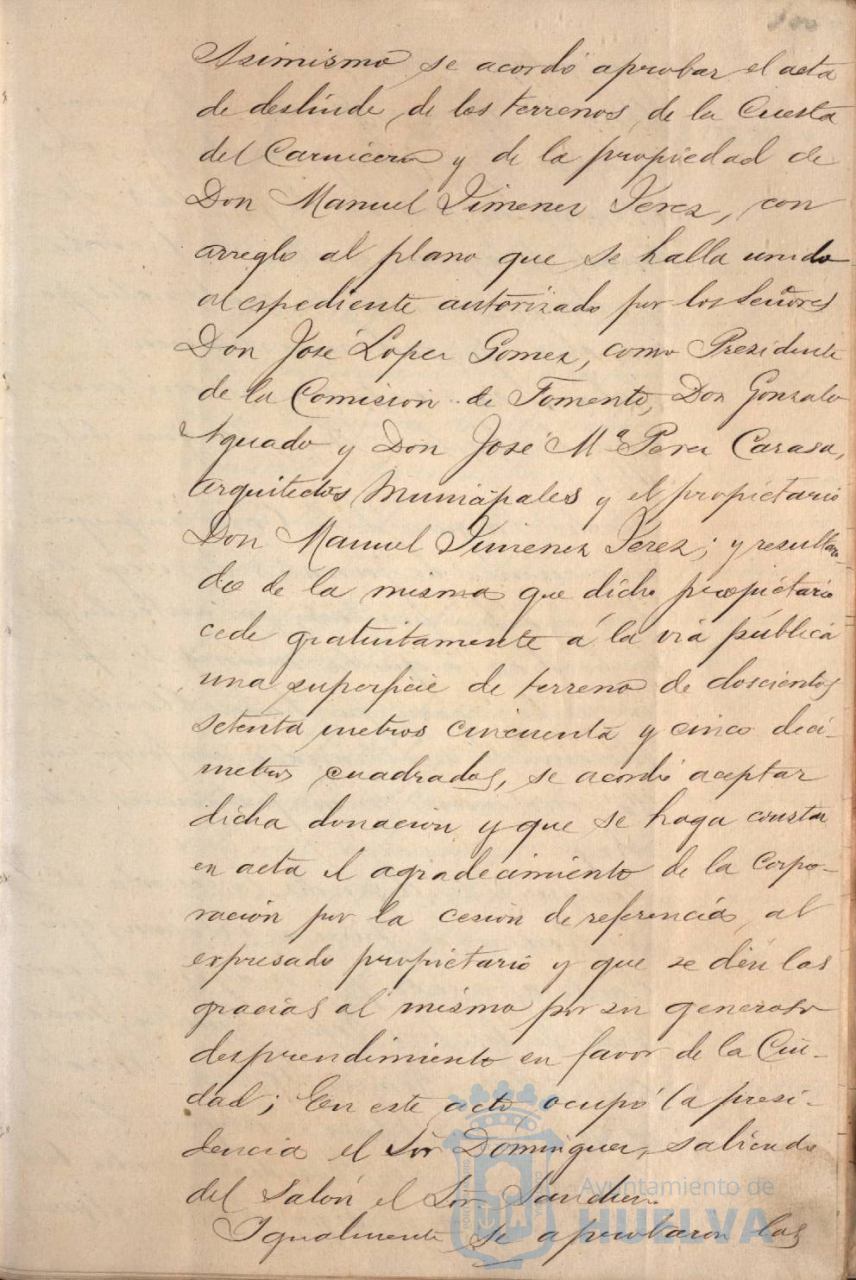 100
Asimismo se acordó aprobar el acta
de deslinde de los terrenos de la Cuesta
del Carnicero y de la propiedad de
Don Manuel Jimenez Jerez, con
arreglo al plano que se halla unido
al espediente autorizado por los Señores
Don José Lopez Gomez, como Presidente
de la Comision de Fomento, Don Gonzalo
Aguado y Don José Mª Perez Carasa,
arquitectos Municipales y el propietario
Don Manuel Jimenez Jerez; y resultan-
do de la misma que dicho propietario
cede gratuitamente á la via pública
una superficie de terreno de doscientos
setenta metros cincuenta y cinco deci-
metros cuadrados, se acordó aceptar
dicha donacion y que se haga constar
en acta el agradecimiento de la Corpo-
ración por la cesion de referencia, al
expresado propietario y que se dén las
gracias al mismo por su generoso
desprendimiento en favor de la Ciu-
dad; En este acto ocupó la presi-
dencia el Sor Dominguez, saliendo
del Salón el Sor Sanchez.
Igualmente se aprobaron las
Ayuntamiento de
HUELVA